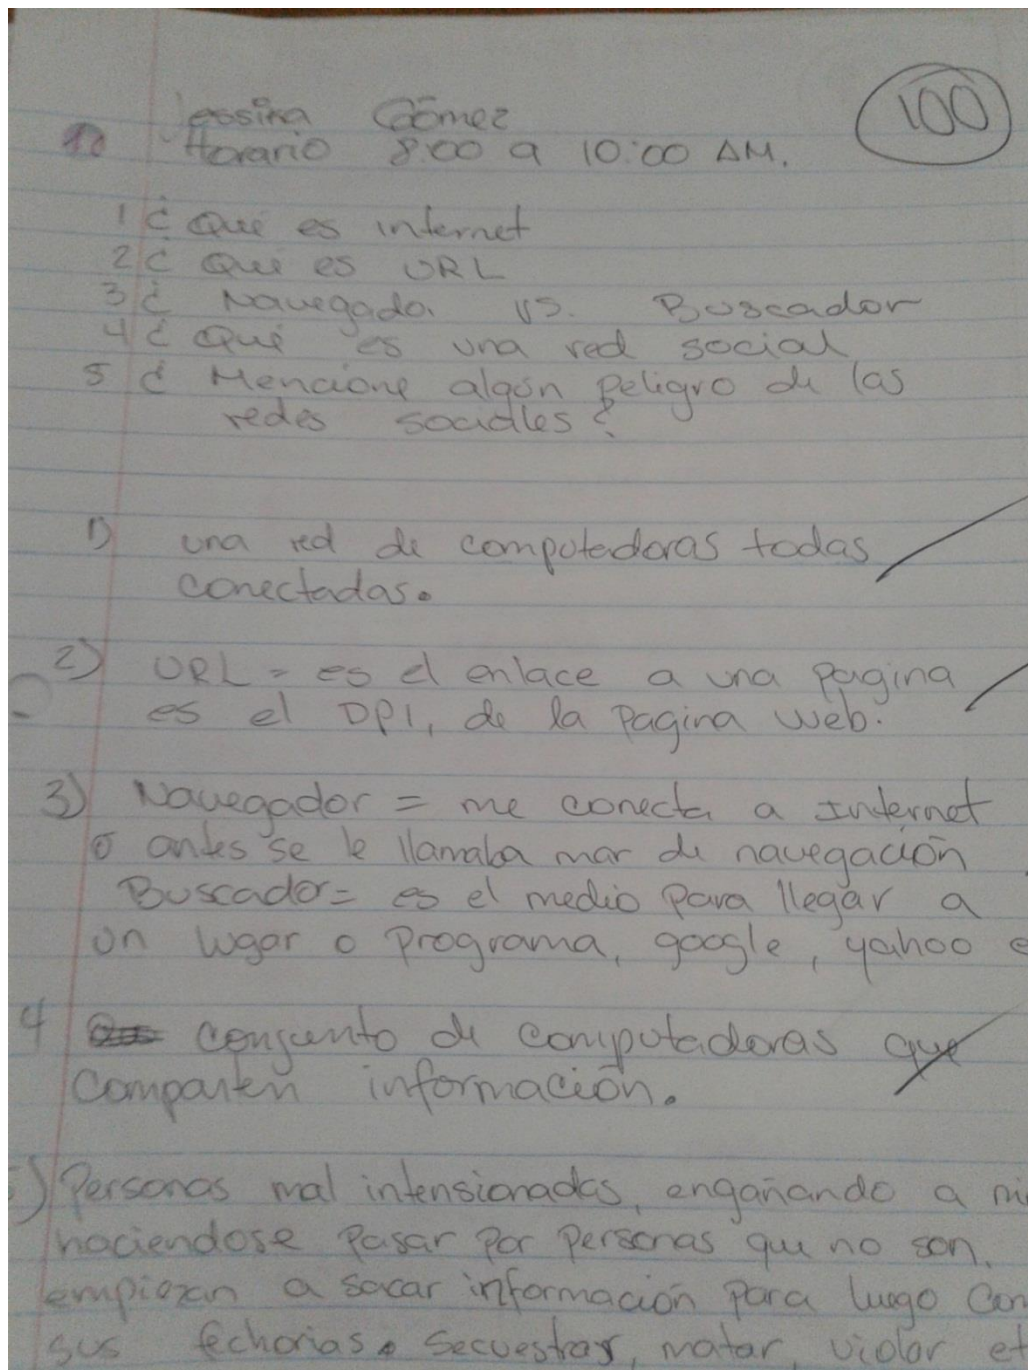 Jessika Gómez
100
Horario 8:00 a 10:00 AM.
1 ¿ Qué es internet
2 ¿ Qué es URL
3 ¿ Navegador vs. Buscador
4 ¿ Qué es una red social
5 ¿ Mencione algún peligro de las
redes sociales?
1) una red de computadoras todas
conectadas.
2) URL = es el enlace a una pagina
es el DPI, de la pagina web.
3) Navegador = me conecta a Internet
o antes se le llamaba mar de navegación
Buscador = es el medio para llegar a
un lugar o programa, google, yahoo e
4 conjunto de computadoras que
comparten información.
) Personas mal intensionadas, engañando a ni
haciendose pasar por personas que no son.
empiezan a sacar información para luego con
sus fechorias. secuestrar, matar, violar et